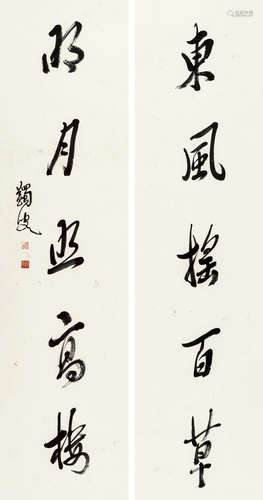 東風搖百草
明月照高樓
蠲叟